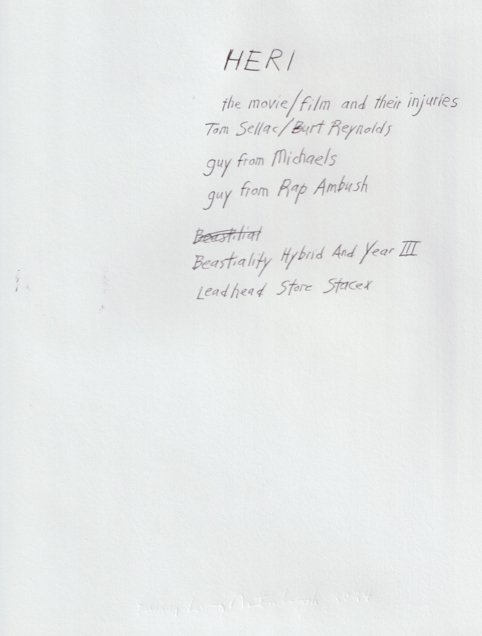 HERI
the movie/film and their injuries
Tom Sellac/Burt Reynolds
guy from Michaels
guy from Rap Ambush
Beastilial
Beastiality Hybrid And Year III
Leadhead Store Stacex